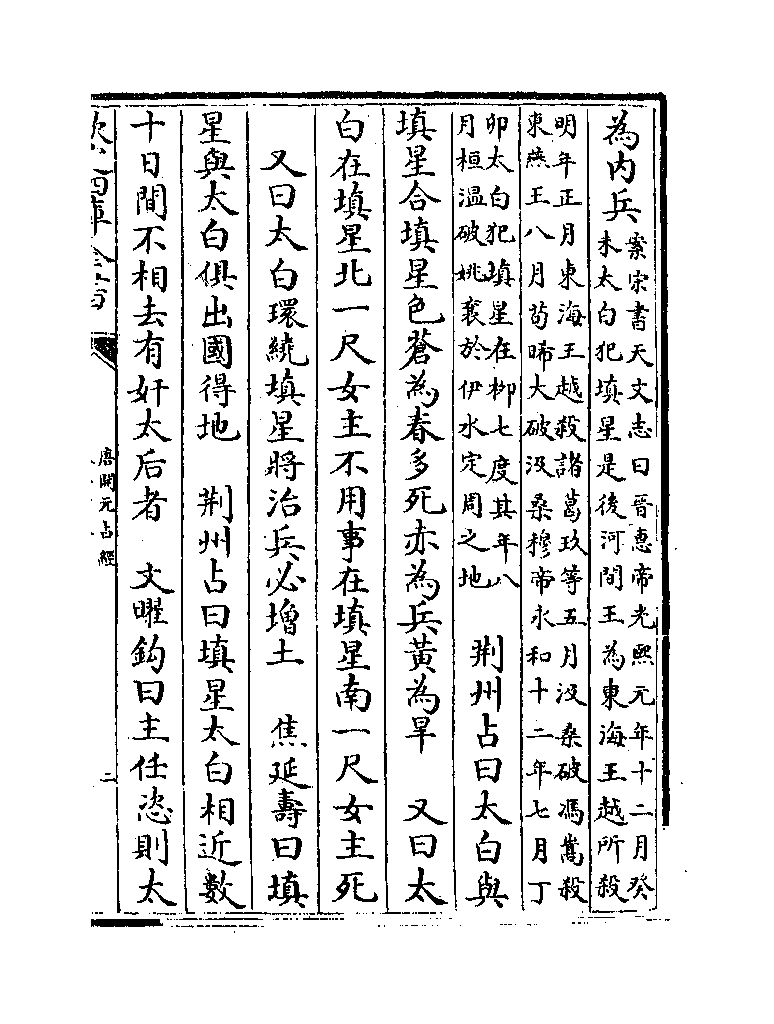 為内兵案宋書天文志曰晉惠帝光熙元年十二月癸
未太白犯填星是後河間王為東海王越所殺
明年正月東海王越殺諸葛玖等五月汲桑破馮嵩殺
東燕王八月茍晞大破汲桑穆帝永和十二年七月丁
卯太白犯填星在柳七度其年八
月桓溫破姚襄於伊水定周之地　荆州占曰太白與
填星合填星色蒼為春多死亦為兵黄為旱　又曰太
白在填星北一尺女主不用事在填星南一尺女主死
又曰太白環繞填星將治兵必增土　焦延壽曰填
星與太白俱出國得地　荆州占曰填星太白相近數
十日間不相去有奸太后者　文曜鈎曰主任恣則太
欽定四庫全書
唐開元占經
二